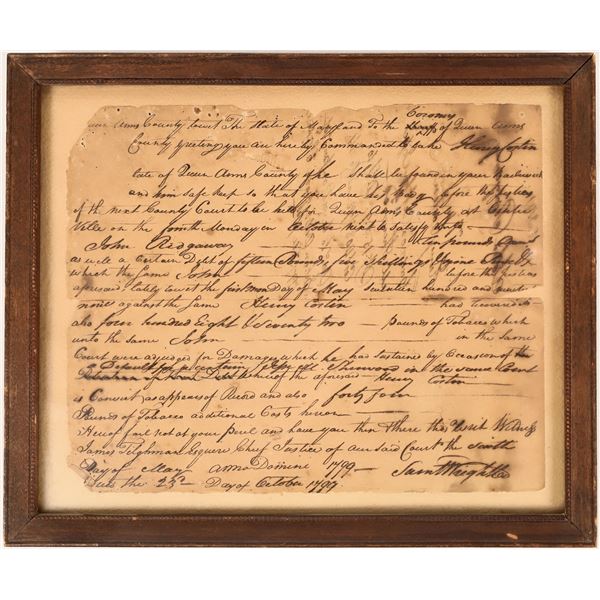 Coroner
Anns County towit The State of Maryland To the of Queen Anns
County Greeting you are hereby Commanded to take Henry Costin
late of Queen Anns County if he shall be found in your Bailiwick
and him safe keep so that you have his Body before the Justices
of the next County Court to be held for Queen Anns County at Centre
Ville on the fourth Monday in October next to satisfy unto
John Ridgaway ten pounds
as well a Certain Debt of fifteen Pounds five Shillings
which the same John before the Justices
aforesaid lately towit the first monday of May seventeen hundred and ninety
nine against the same Henry Costin had recovered
also four hundred Eight & Seventy two pounds of Tobacco which
unto the same John in the same
Court were adjudged for Damages which he had sustained by Occasion of the
in the same Court
of the aforesaid Henry Costin
is Convict as appears of Record and also forty four
Pounds of Tobacco additional Costs hereon
Hereof fail not at your peril and have you then & there this Writ Witness
James Tilghman Esquire Chief Justice of our said Court the sixth
Day of May Anno Domini 1799
the 23d Day of October 1799 Saml Wright Clk